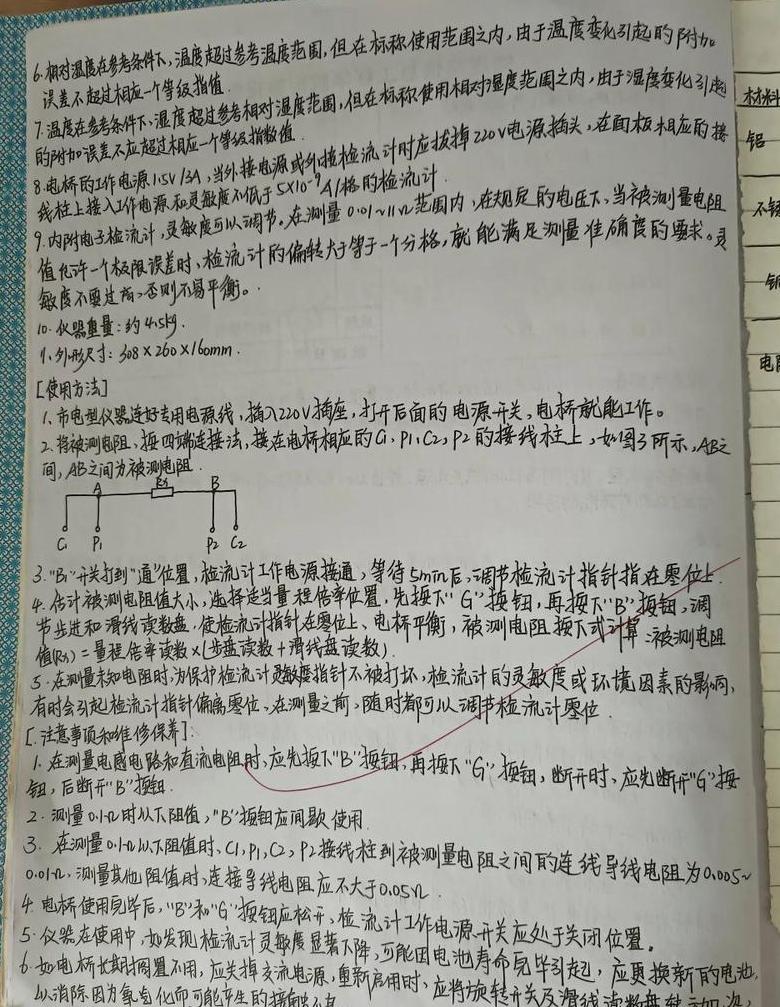 6.相对湿度在参考条件下,温度超过参考温度范围,但在标称使用范围之内,由于温度变化引起的附加
误差不超过相应一个等级指值.
7.温度在参考条件下,湿度超过参考相对湿度范围,但在标称使用相对湿度范围之内,由于湿度变化引起
的附加误差不应超过相应一个等级指数值.
8.电桥的工作电源1.5V/3A,当外接电源或外接检流计时应拔掉220V电源插头,在面板相应的接
线柱上接入工作电源和灵敏度不低于5×10⁻⁹A/格的检流计.
9.内附电子检流计,灵敏度可以调节。在测量0.01~11Ω范围内,在规定的电压下,当被测量电阻
值允许一个极限误差时,检流计的偏转大于等于一个分格,就能满足测量准确度的要求。灵
敏度不要过高,否则不易平衡。
10.仪器重量:约4.5kg.
11.外形尺寸:308×260×160mm.
[使用方法]
1.市电型仪器连好专用电源线,插入220V插座,打开后面的电源开关,电桥就能工作。
2.将被测电阻,按四端连接法,接在电桥相应的C1,P1,C2,P2的接线柱上,如图3所示,AB之
间,AB之间为被测电阻.
A Rx B
C1 P1 P2 C2
3."B1"开关打到"通"位置,检流计工作电源接通,等待5min后,调节检流计指针指在零位上.
4.估计被测电阻值大小,选择适当量程倍率位置,先按下"G"按钮,再按下"B"按钮,调
节步进和滑线读数盘,使检流计指针在零位上、电桥平衡,被测电阻按下式计算:被测电阻
值(Rx)=量程倍率读数×(步盘读数+滑线盘读数).
5.在测量未知电阻时,为保护检流计灵敏度指针不被打坏,检流计的灵敏度或环境因素的影响,
有时会引起检流计指针偏离零位、在测量之前,随时都可以调节检流计零位.
[注意事项和维修保养]:
1.在测量电感电路和直流电阻时,应先按下"B"按钮,再按下"G"按钮,断开时、应先断开"G"按
钮,后断开"B"按钮.
2.测量0.1Ω时以下阻值,"B"按钮应间歇使用.
3.在测量0.1Ω以下阻值时、C1,P1,C2,P2接线柱到被测量电阻之间的连线导线电阻为0.005~
0.01Ω,测量其他阻值时,连接导线电阻应不大于0.05Ω.
4.电桥使用完毕后,"B"和"G"按钮应松开,检流计工作电源开关应处于关闭位置。
5.仪器在使用中,如发现检流计灵敏度显著下降,可能因电池寿命完毕引起,应更换新的电池.
6.如电桥长期搁置不用,应关掉交流电源,重新启用时、应将旋转开关及滑线读数盘
以消除因为氧气化而可能产生的接触
材料
铝
电阻